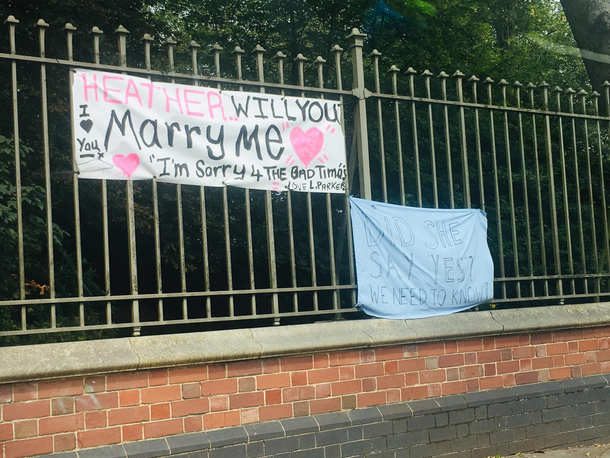 HEATHER.. WILL YOU
I ♥ You x
Marry Me
"I'm Sorry 4 THE BAD Time's
= LOVE L. PARKER
DID SHE
SAY YES?
WE NEED TO KNOW!